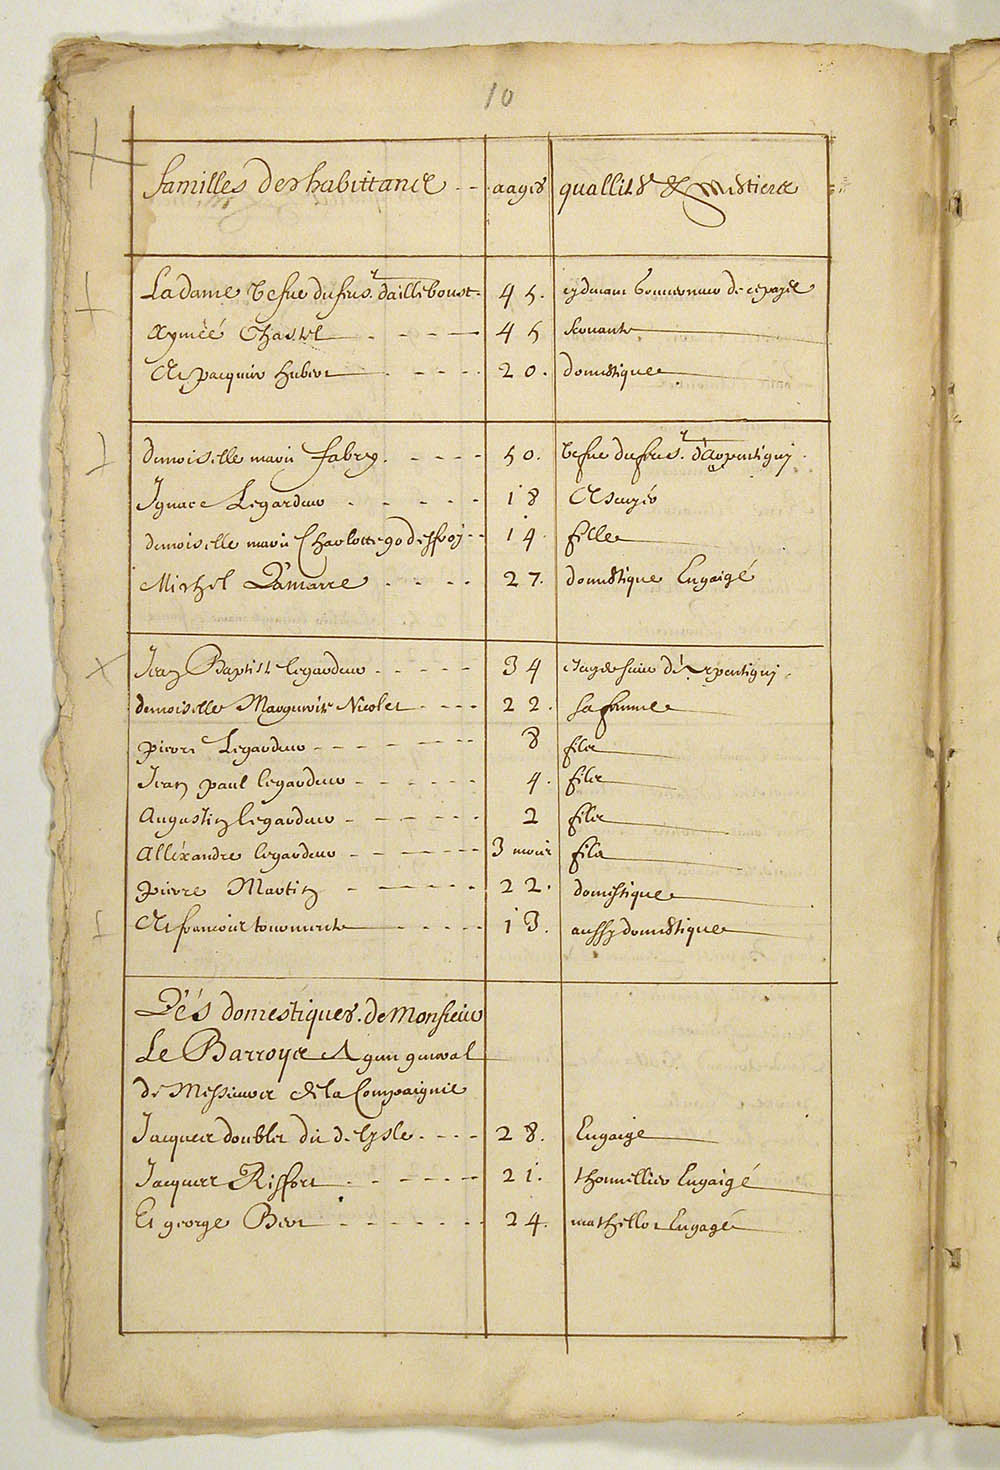 10
familles des habittans -- aages quallites & mestiers
La dame vefve du feu s.r dailleboust - 45. cydevant Gouverneur de ce pays
Aymeé Chastel - - - - 45 servante
Et pacquier hubert - - - - 20. domestique
demoiselle marie fabry - - - - 50. vefve du feu s.r d'Arpentigny
Ignace Legardeur - - - - - 18 Escuyer
demoiselle marie Charlotte godeffroy -- 14. fille
Michel Lamarre - - - - 27. domestique Engaigé
Jean Baptiste legardeur - - - - 34 sieur de Arpentigny
demoiselle Marguerite Nicolet - - - - 22. sa femme
pierre Legardeur - - - - - - 8 fils
Jean paul legardeur - - - - - 4. fils
Augustin legardeur - - - - - - 2 fils
Alléxandre legardeur - - - - - - 3 mois fils
pierre Martin - - - - - - 22. domestique
Et francois tourmente - - - - - 13. aussy domestique
Lés domestiques de Monsieur
Le Barroys Agent general
de Messieurs de la Compaignie
Jacques doublet dit delisle - - - - 28. Engaigé
Jacques Riffort - - - - - - 21. thonnellier Engaigé
Et george Beve - - - - - - 24. mathellot Engagé